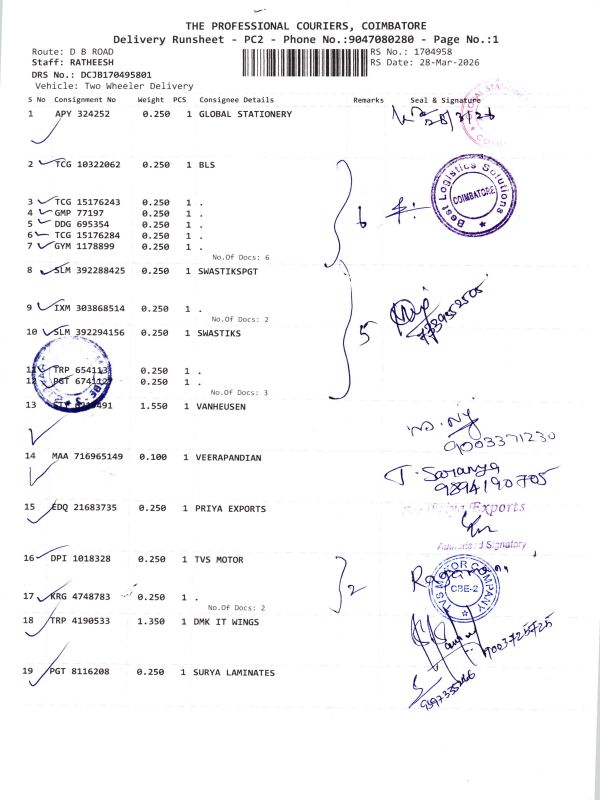 THE PROFESSIONAL COURIERS, COIMBATORE
Delivery Runsheet - PC2 - Phone No.:9047080280 - Page No.:1
Route: D B ROAD
RS No.: 1704958
Staff: RATHEESH
RS Date: 28-Mar-2026
DRS No.: DCJB170495801
Vehicle: Two Wheeler Delivery
S No Consignment No Weight PCS Consignee Details Remarks Seal & Signature
1 APY 324252 0.250 1 GLOBAL STATIONERY
2 TCG 10322062 0.250 1 BLS
3 TCG 15176243 0.250 1 .
4 GMP 77197 0.250 1 .
5 DDG 695354 0.250 1 .
6 TCG 15176284 0.250 1 .
7 GYM 1178899 0.250 1 .
No.Of Docs: 6
6
Best Logistics Solutions
COIMBATORE
8 SLM 392288425 0.250 1 SWASTIKSPGT
9 IXM 303868514 0.250 1 .
No.Of Docs: 2
10 SLM 392294156 0.250 1 SWASTIKS
5
11 TRP 654113 0.250 1 .
12 PGT 674112 0.250 1 .
No.Of Docs: 3
13 1.550 1 VANHEUSEN
9003371230
14 MAA 716965149 0.100 1 VEERAPANDIAN
T. Saranya
9894190705
15 EDQ 21683735 0.250 1 PRIYA EXPORTS
Priya Exports
Authorised Signatory
16 DPI 1018328 0.250 1 TVS MOTOR
TVS MOTOR COMPANY
CBE-2
2
17 KRG 4748783 0.250 1 .
No.Of Docs: 2
18 TRP 4190533 1.350 1 DMK IT WINGS
9003725425
19 PGT 8116208 0.250 1 SURYA LAMINATES